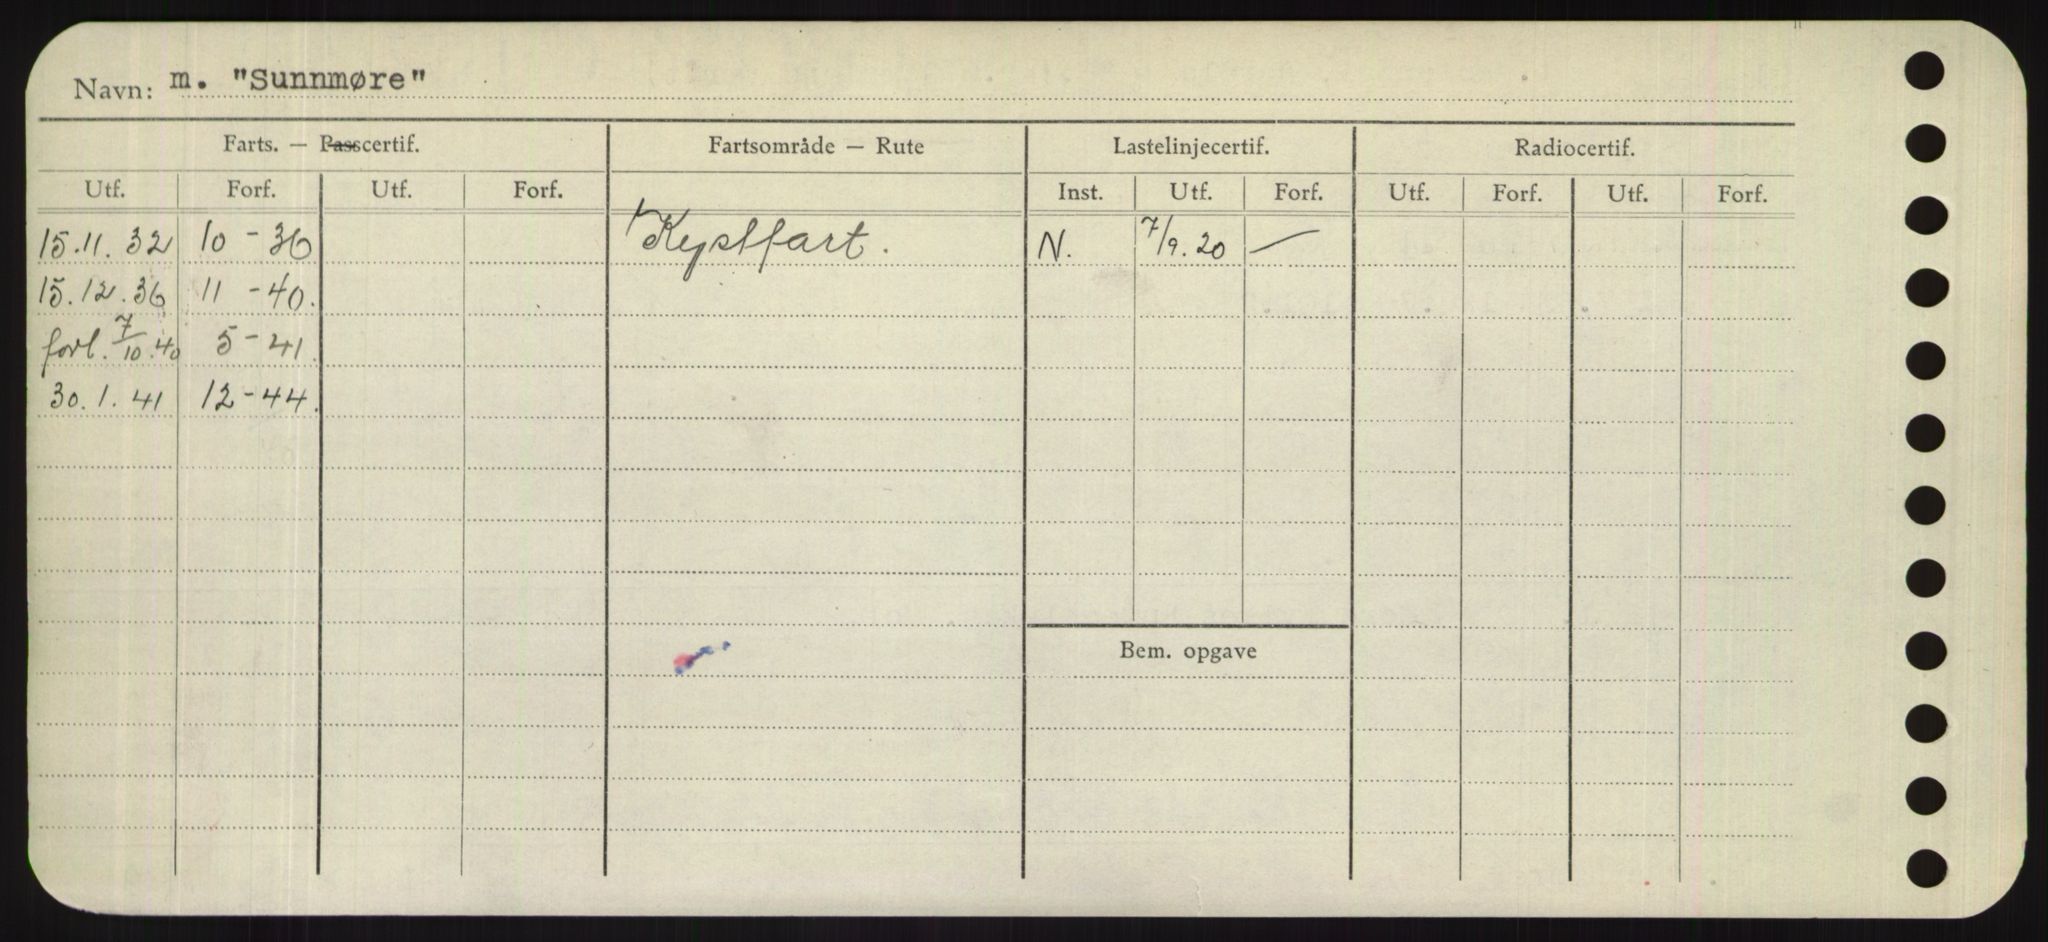 Navn: m. "Sunnmøre"
Farts. — Passcertif. Fartsområde — Rute Lastelinjecertif. Radiocertif.
Utf. Forf. Utf. Forf. Inst. Utf. Forf. Utf. Forf. Utf. Forf.
15.11.32 10-36 Kystfart. N. 7/9.20 —
15.12.36 11-40.
forl. 7/10.40 5-41.
30.1.41 12-44.
Bem. opgave